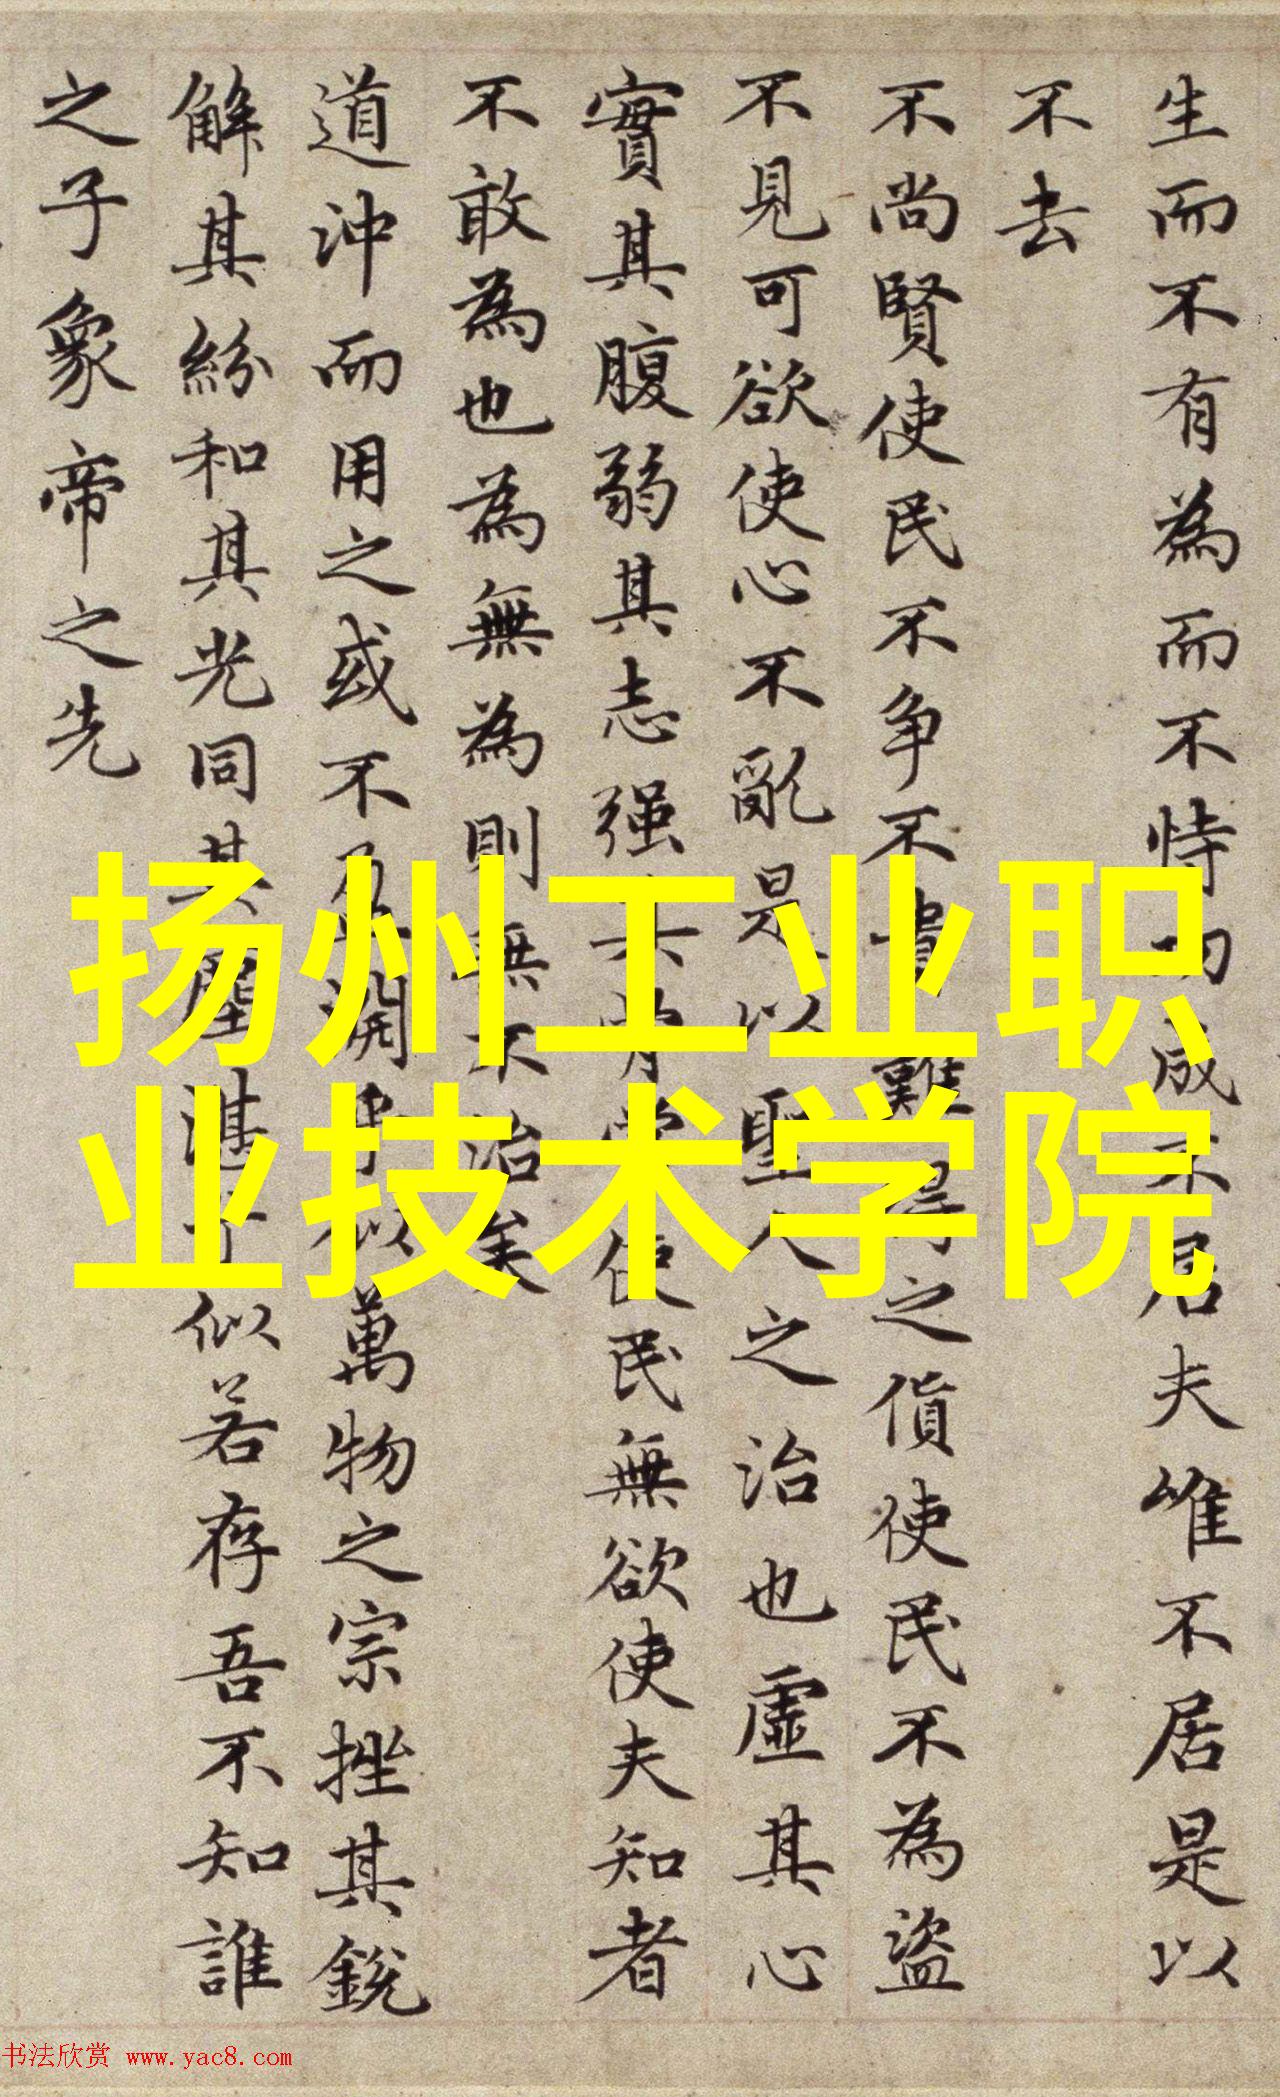 生而不有為而不恃功成不居夫唯不居是以
不去
不尚賢使民不争不貴難得之貨使民不為盜
不見可欲使心不亂是以聖人之治也虛其心
實其腹弱其志强其骨常使民無欲使夫知者
不敢為也為無為則無不治矣
道沖而用之或不盈淵乎似萬物之宗挫其銳
解其紛和其光同其塵湛兮似若存吾不知誰
之子象帝之先
扬州工业职
业技术学院
书法欣赏 www.yac8.com